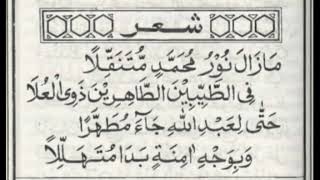 شعر
مَازَالَ نُوْرُ مُحَمَّدٍ مُتَنَقِّلًا
فِى الطَّيِّبِيْنَ الطَّاهِرِيْنَ ذَوِى الْعُلَا
حَتّٰى لِعَبْدِ اللهِ جَآءَ مُطَهَّرًا
وَبِوَجْهِ اٰمِنَةٍ بَدَا مُتَهَلِّلًا